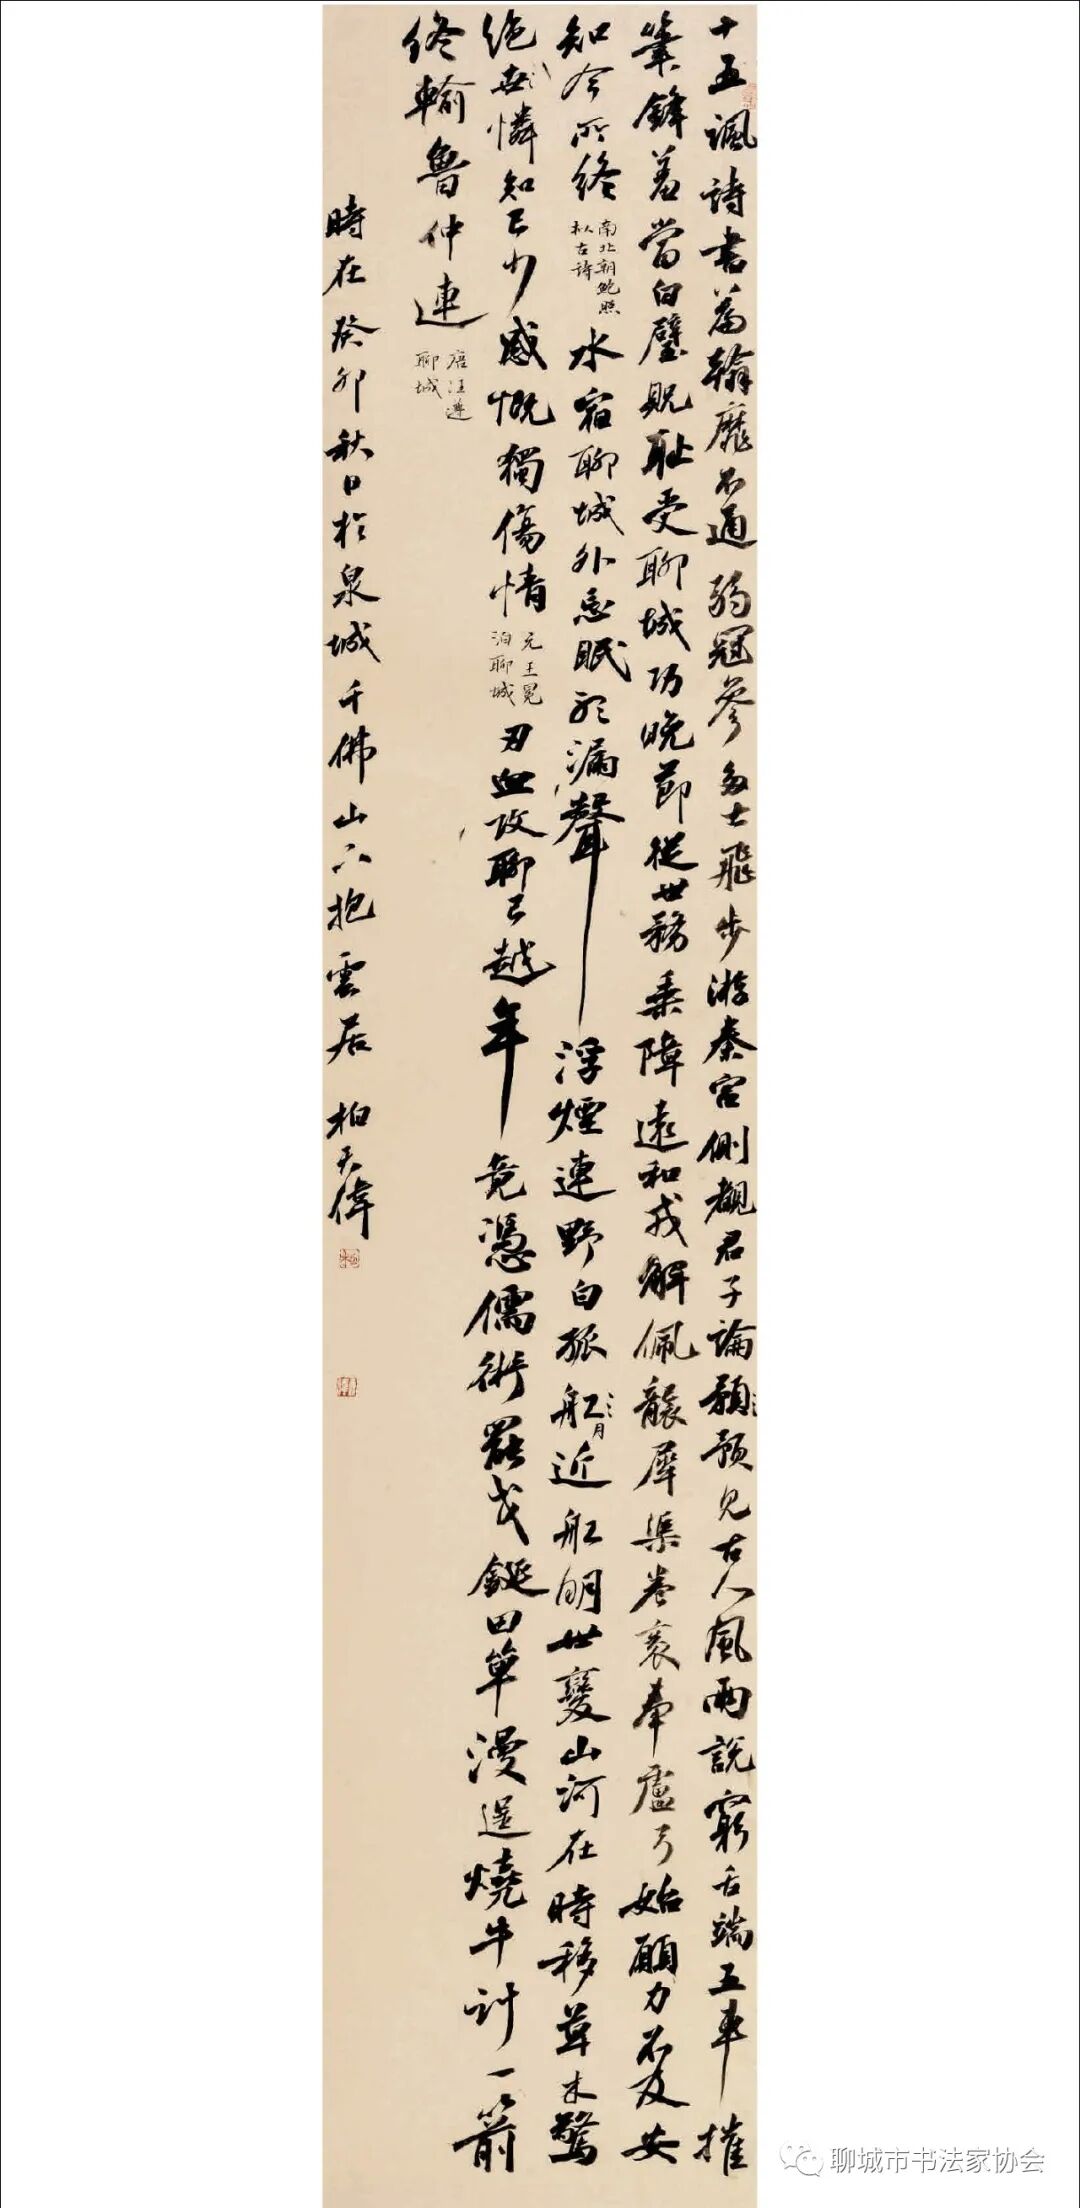 十五諷詩書篇翰靡不通弱冠參多士飛步游秦宮側覩君子論預見古人風兩說窮舌端五車摧
筆鋒羞當白璧貺耻受聊城功晚節從世務乘障遠和戎解佩襲犀渠卷袠奉盧弓始願力不及安
知今所終
南北朝鮑照
拟古詩
水宿聊城外忘眠聽漏聲浮煙連野白孤舡月近舡明世變山河在時移草木驚
絶世憐知己少感慨獨傷情
元王冕
泊聊城
刃血攻聊已越年竟憑儒術罷戈鋋田單漫逞燒牛計一箭
終輸魯仲連
唐汪遵
聊城
時在癸卯秋日於泉城千佛山下抱雲居 柏天偉
聊城市书法家协会